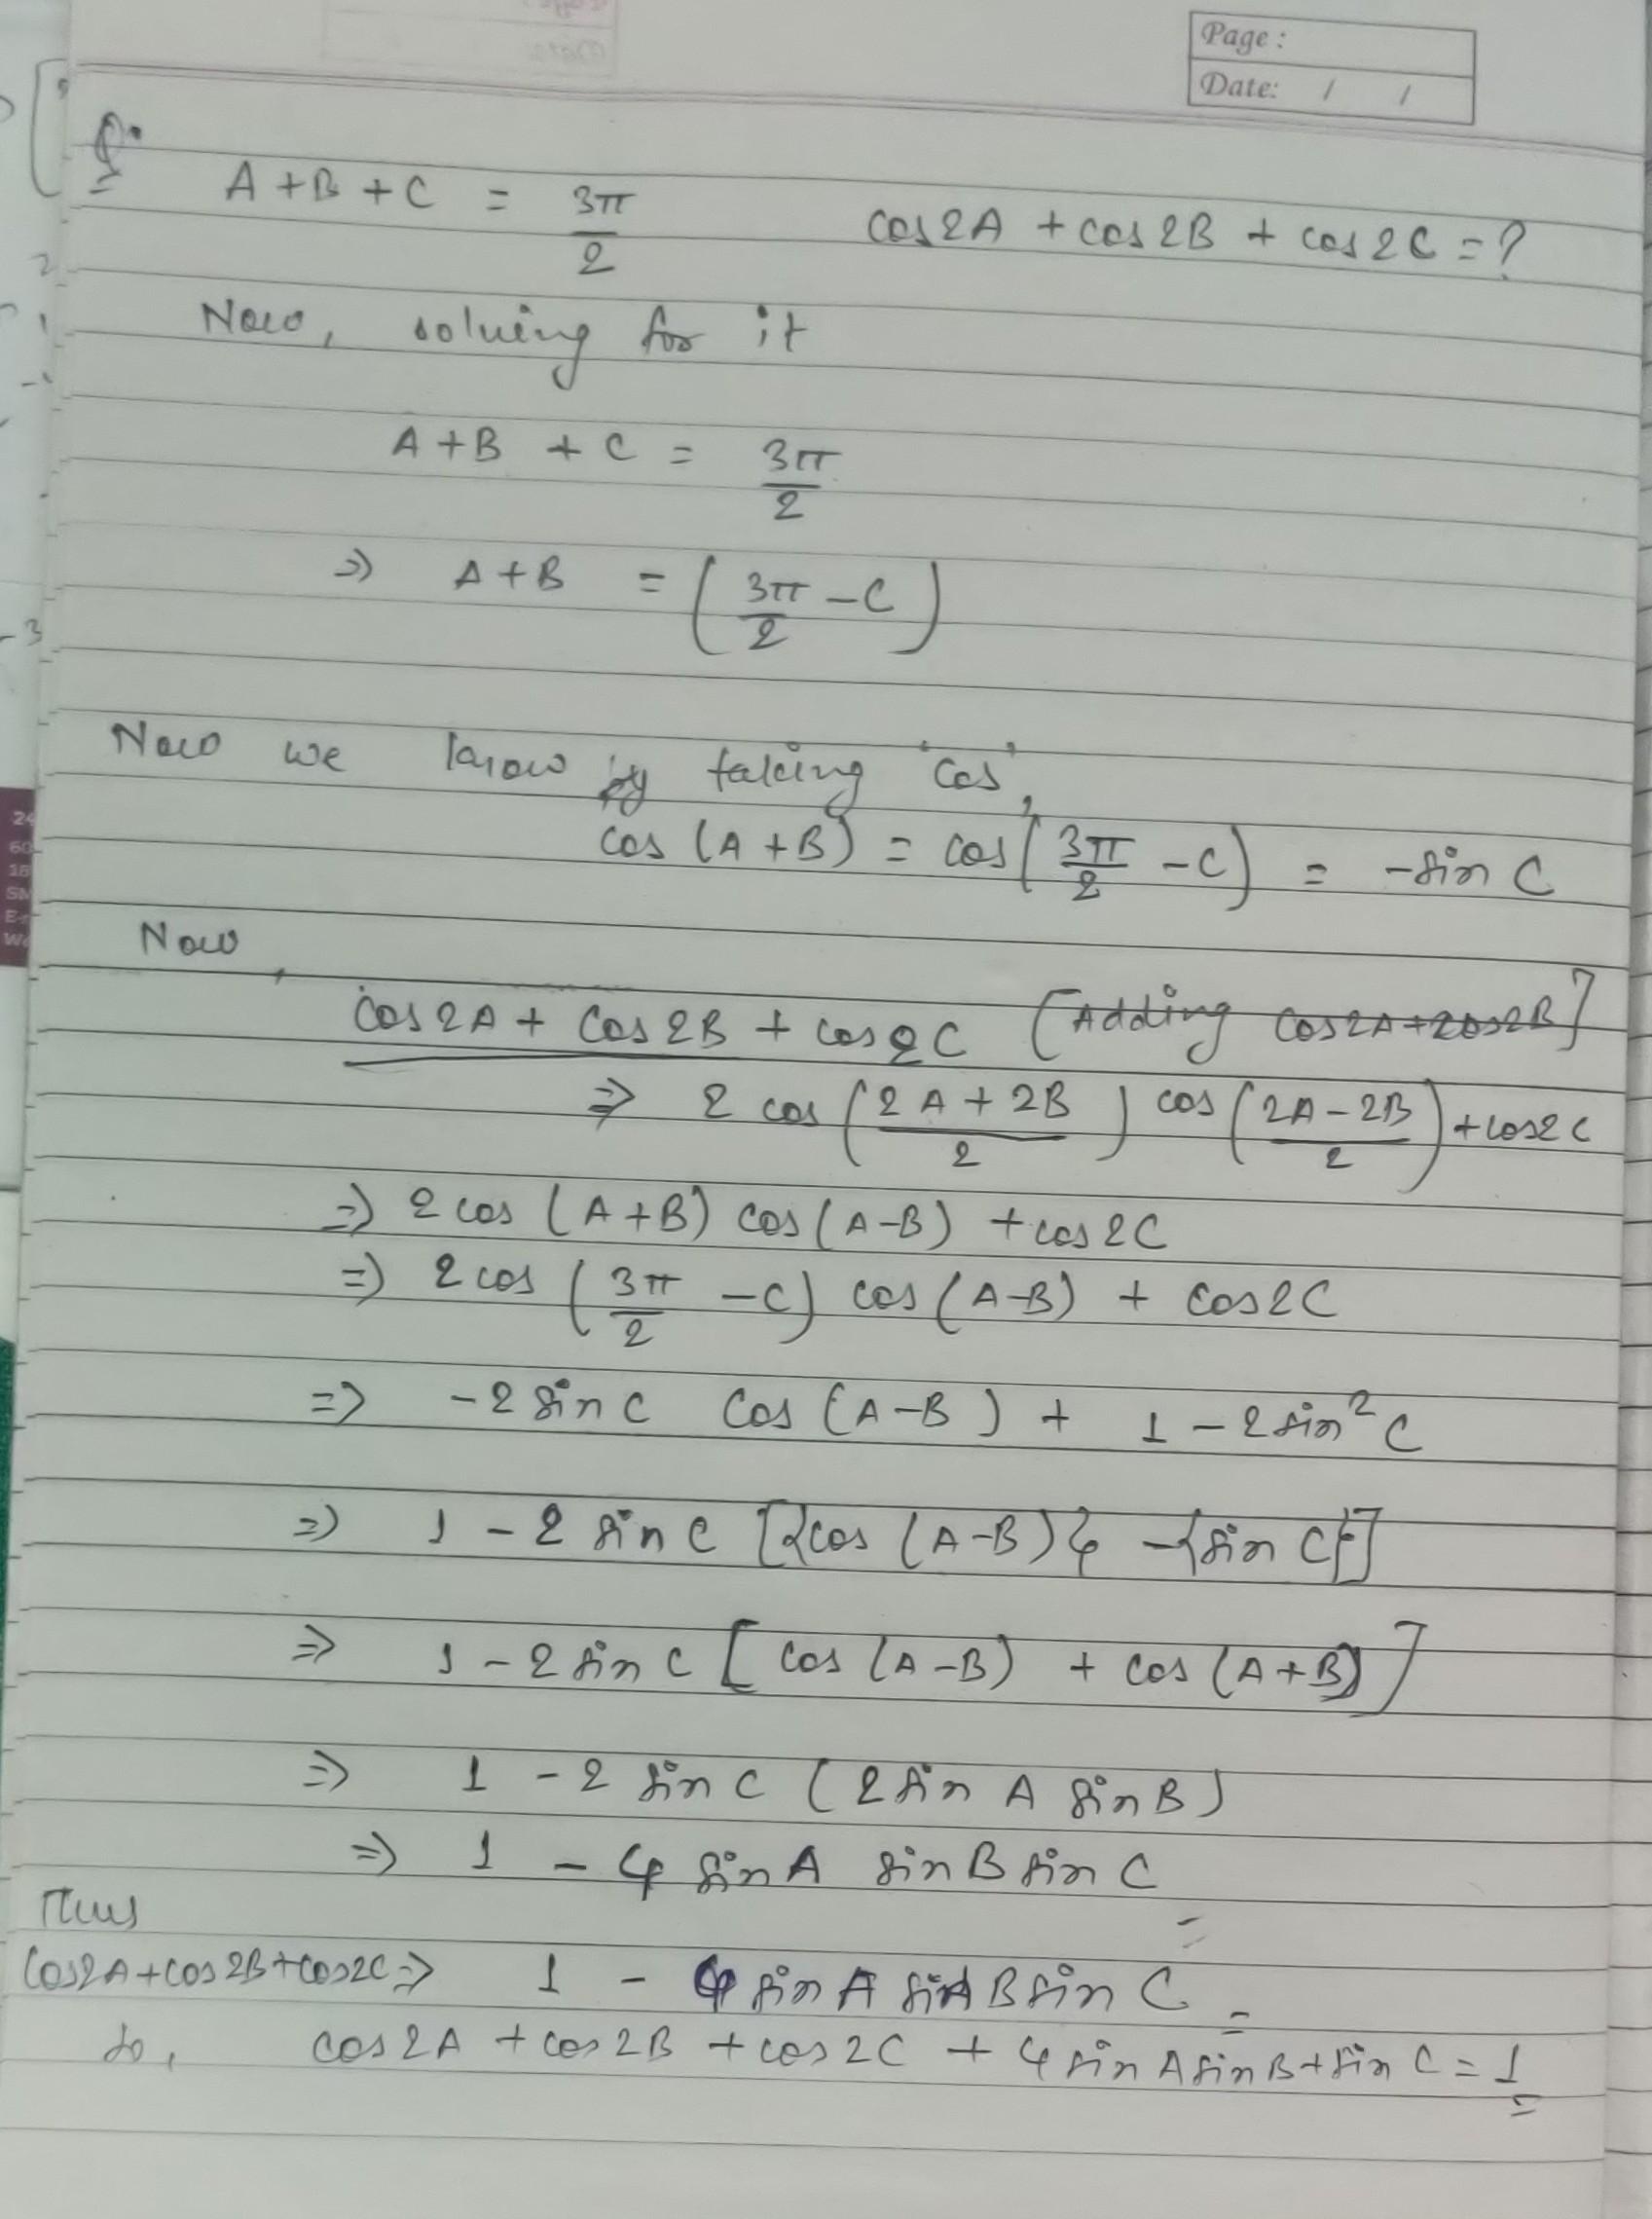 Page :
Date: / /
Q.
A + B + C = 3π/2 cos2A + cos2B + cos2C = ?
Now, solving for it
A + B + C = 3π/2
⇒ A + B = (3π/2 - C)
Now we know by taking 'cos',
cos (A + B) = cos (3π/2 - C) = - sin C
Now,
cos2A + cos2B + cos2C [Adding cos2A + cos2B]
⇒ 2 cos (2A + 2B / 2) cos (2A - 2B / 2) + cos2C
⇒ 2 cos (A + B) cos (A - B) + cos 2C
⇒ 2 cos (3π/2 - C) cos (A - B) + cos2C
⇒ - 2 sin C cos (A - B) + 1 - 2 sin² C
⇒ 1 - 2 sin C [{cos (A - B)} - {sin C}]
⇒ 1 - 2 sin C [cos (A - B) + cos (A + B)]
⇒ 1 - 2 sin C (2 sin A sin B)
⇒ 1 - 4 sin A sin B sin C
Thus
cos2A + cos2B + cos2C ⇒ 1 - 4 sin A sin B sin C
so, cos2A + cos2B + cos2C + 4 sin A sin B + sin C = 1